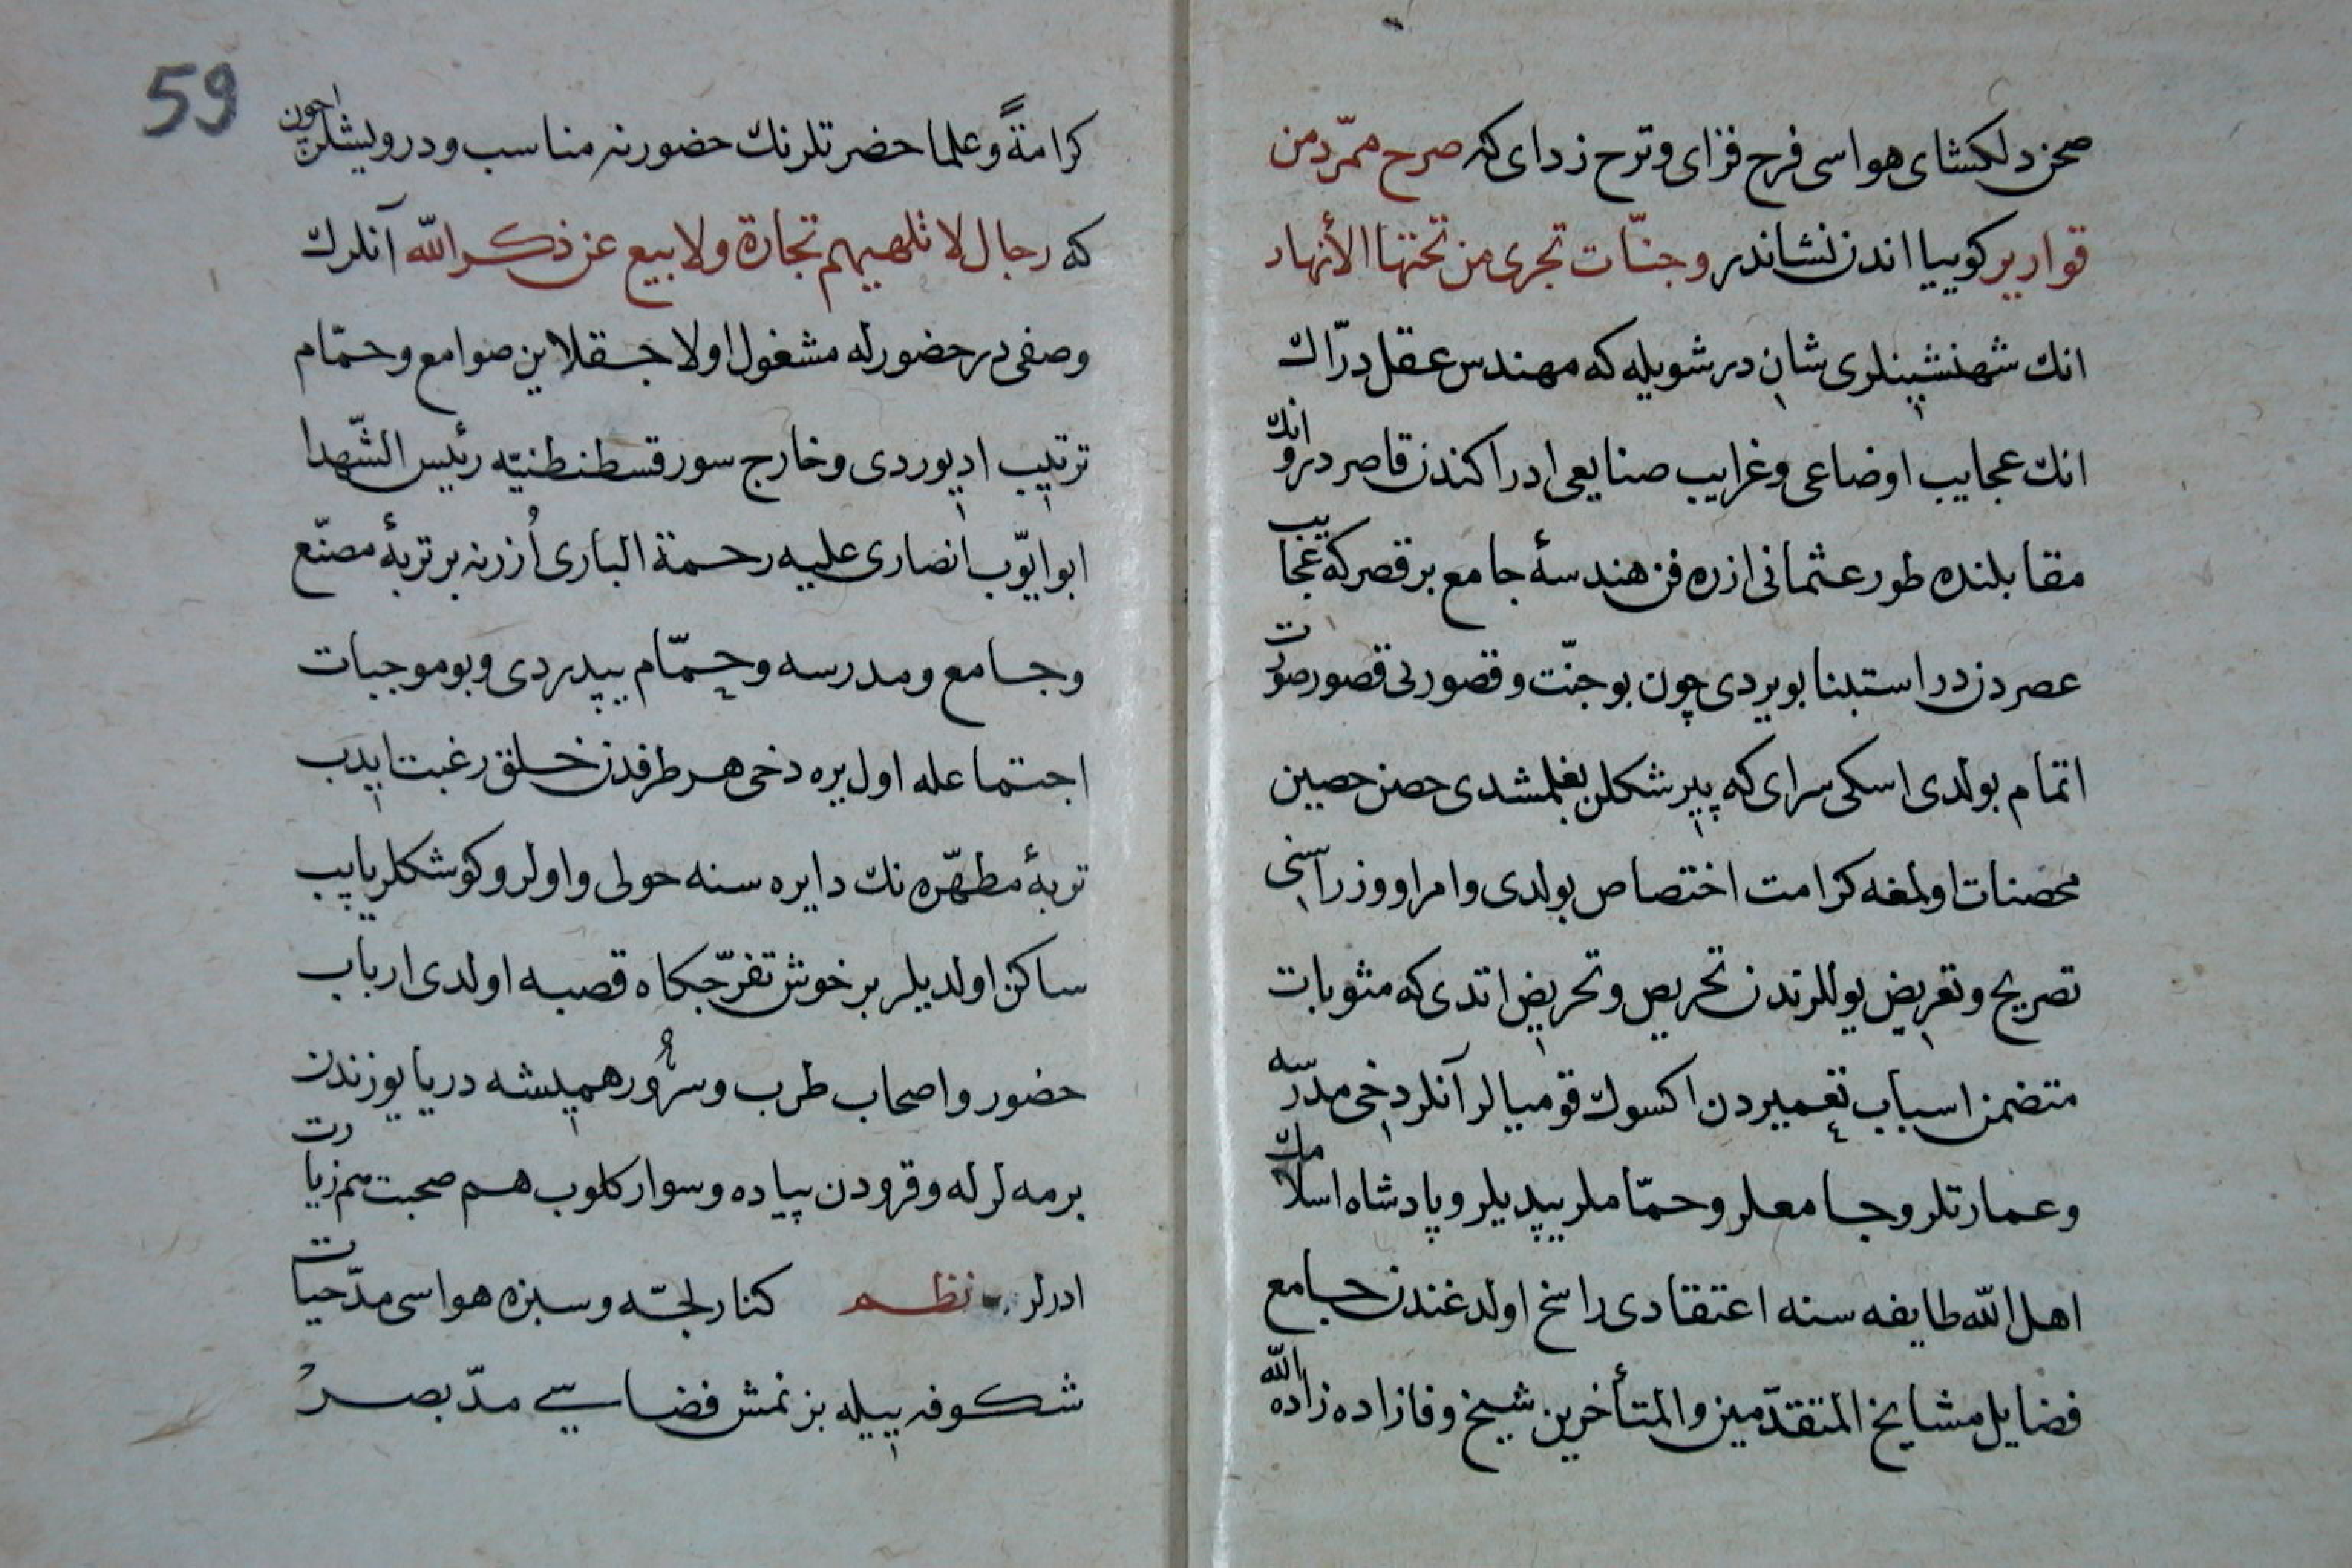 صحن دلكشاى هواسى فرح فزاى وترح زداى كه صرح ممرّد من
قوارير كوييا اندن نشاندر وجنّات تجرى من تحتها الأنهار
انك شهنشينلرى شان در شويله كه مهندس عقل درّاك
انك عجايب اوضاعى وغرايب صنايعى ادراكندن قاصر در وانك
مقابلنده طور عثمانى ازره فن هندسهٔ جامع بر قصر كه عجايب
عصر دندر استبنا بويردى چون بو جنّت وقصور بى قصور صورت
اتمام بولدى اسكى سراى كه پير شكلن بغلمشدى حصن حصين
محصنات اولمغه كرامت اختصاص بولدى وامرا ووزراسنى
تصريح وتعريض يوللرندن تحريص وتحريض اتدى كه مثوبات
متضمن اسباب تعميردن اكسوك قوميالر آنلر دخى مدرسه
وعمارتلر وجامعلر وحمّاملر يپديلر وپادشاه اسلامك
اهل الله طايفه سنه اعتقادى راسخ اولدغندن جامع
فضايل مشايخ المتقدّمين والمتأخرين شيخ وفازاده زاده الله
59
كرامةً وعلما حضرتلرنك حضورنه مناسب ودرويشلر اچون
كه رجال لا تلهيهم تجارة ولا بيع عن ذكر الله آنلرك
وصفى در حضورله مشغول اولا جقلاين صوامع وحمّام
ترتيب اديوردى وخارج سور قسطنطنيّه رئيس الشّهدا
ابو ايّوب انصارى عليه رحمة البارى اُزرنه بر تربهٔ مصنّع
وجامع ومدرسه وحمّام يپدردى وبو موجبات
اجتماعله اول يره دخى هر طرفدن خلق رغبت ايدب
تربهٔ مطهّره نك دايره سنه حولى واولر وكوشكلر يايپب
ساكن اولديلر بر خوش تفرّجكاه قصبه اولدى ارباب
حضور واصحاب طرب وسرُور هميشه دريا يوزندن
برمه لر له وقرودن پياده وسوار كلوب هم صحبت هم زيارت
ادرلر نظم كنار لجّه وسبزه هواسى مدّ حيات
شكوفه ييله بزنمش فضاسي مدّ بصر